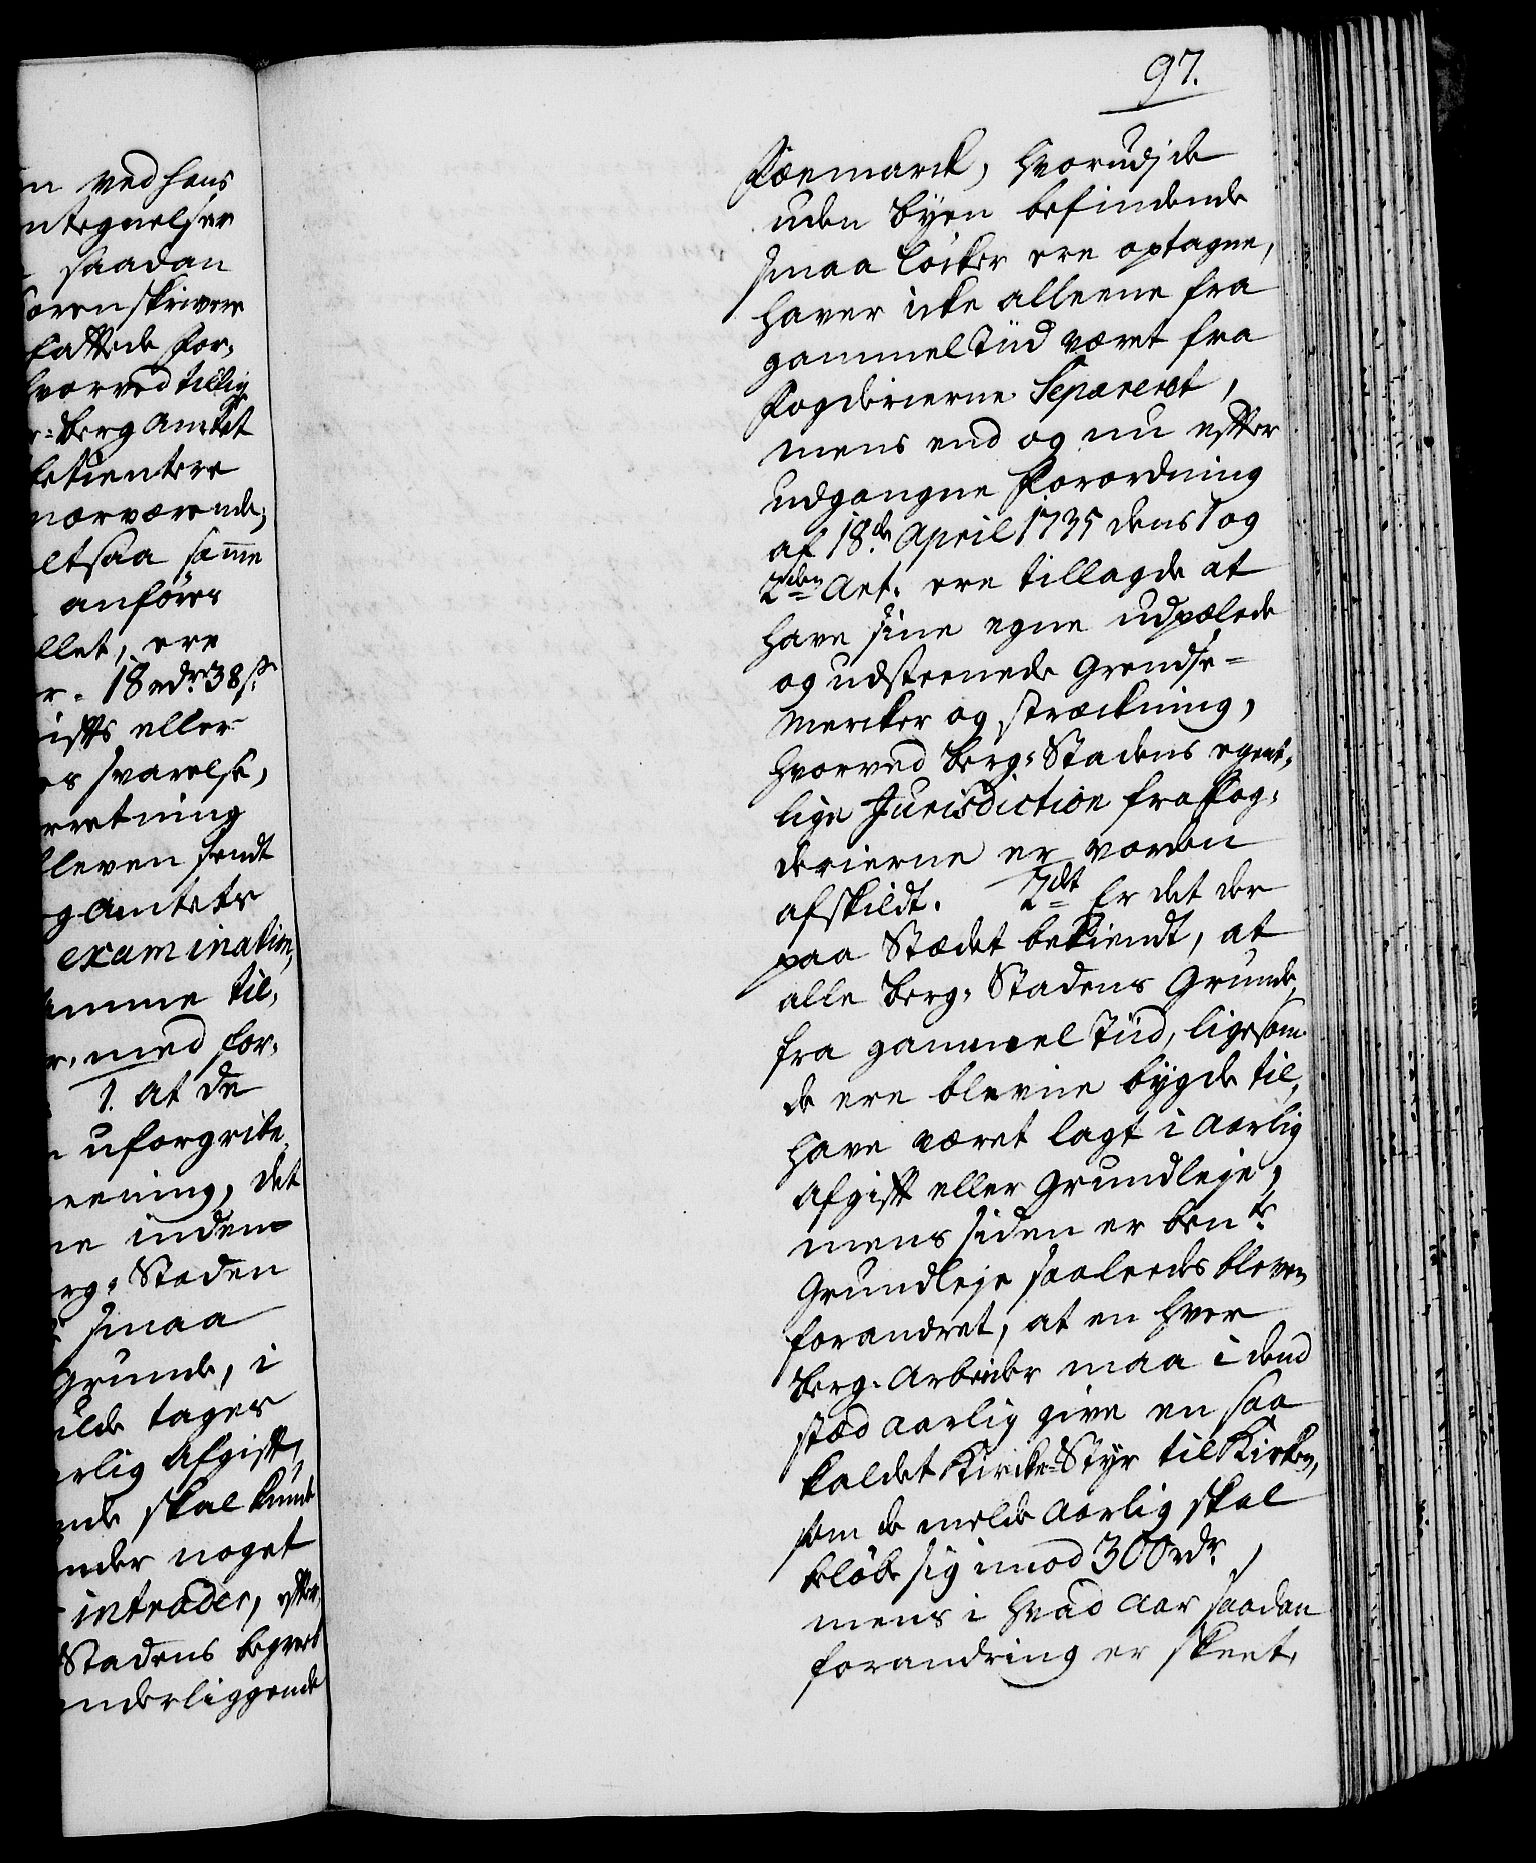 97.
n ved hans
ntegnelser
saadan
orenskrivere
fattede For,
hvorved tillig
r-Berg Amtet
betientere
nærværende,
eltsaa samme
anføres
llet, ere
r. 18 rdr 38 s
ists eller
es svarelse,
rretning
bleven sendt
g Amtets
examination,
amme til,
r, med for,
1. at de
n uforgribe,
eening, det
ne inden
erg-Staden
smaa
grunde, i
ilde tages
rlig Afgift,
nde skal kunde
nder noget
intrader, efter
Stadens begreb
nderliggende
Fæemarck, hvorudj de
uden Byen befindende
smaa Løcker ere optagne,
haver icke alleene fra
gammel Tiid været fra
Fogderierne Separeret,
mens end og nu efter
udgangne Forordning
af 18de April 1735 dens 1 og
2den Art. ere tillagde at
have sine egne udpælede
og udsteenede Grendse-
Mercker og streckning,
hvorved Berg-Stadens egent,
lige Jurisdiction fra Fog,
derierne er vorden
afskildt. 2det Er det der
paa Stædet bekiendt, at
alle Berg-Stadens Grunde,
fra gammel Tiid, ligesom
de ere blevne bygde til,
have været lagt i Aarlig
Afgift eller Grundleje,
mens siden er ben.te
Grundleje saaleedes bleven
forandret, at en hver
Berg-Arbeider maa i dend
sted aarlig give en saa
kaldet Kircke-Styr til Kirken,
som de melde Aarlig skal
beløbe sig imod 300 rdr,
mens i hvad Aar saadan
forandring er skeet,